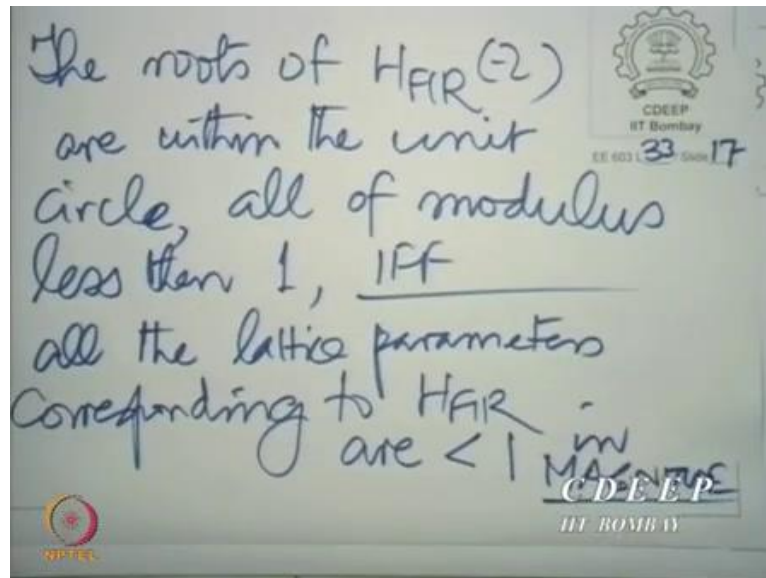 The roots of HFIR(z)
are within the unit
circle, all of modulus
less than 1, IFF
all the lattice parameters
corresponding to HFIR
are < 1 in
MAGNITUDE
CDEEP
IIT Bombay
EE 603 L 33 / Slide 17
CDEEP
IIT BOMBAY
NPTEL